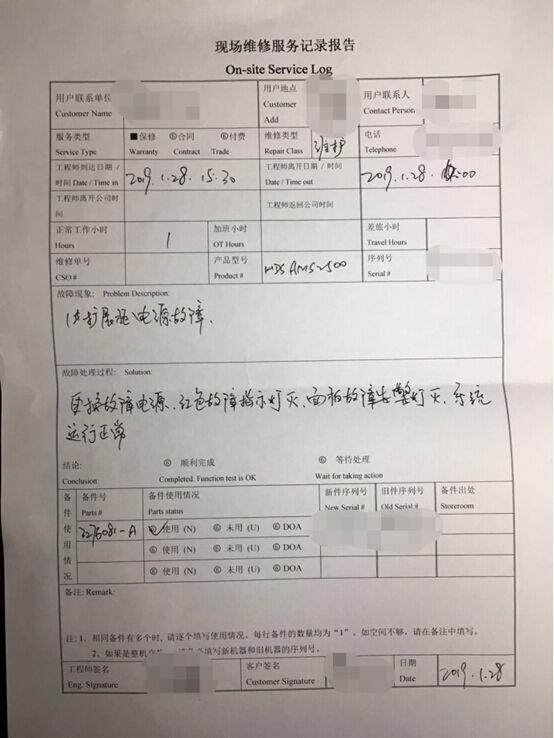 现场维修服务记录报告
On-site Service Log
用户联系单位 用户地点 用户联系人
Customer Name Customer Add Contact Person
服务类型 ■保修 ⓒ合同 ⓒ付费 维修类型 维护 电话
Service Type Warranty Contract Trade Repair Class Telephone
工程师到达日期 / 2019.1.28. 15:30 工程师离开日期 / 时间 2019.1.28.
时间 Date / Time in Date / Time out
工程师离开公司时间 工程师返回公司时间
正常工作小时 1 加班小时 差旅小时
Hours OT Hours Travel Hours
维修单号 产品型号 HDS AMS2500 序列号
CSO # Product # Serial #
故障现象: Problem Description:
1块扩展柜电源故障.
故障处理过程: Solution:
更换故障电源、红色故障指示灯灭、面板故障告警灯灭、系统
运行正常
结论: ⓒ 顺利完成 ⓒ 等待处理
Conclusion: Completed. Function test is OK Wait for taking action
备件使用情况 备件号 备件使用情况 新件序列号 旧件序列号 备件出处
Parts # Parts status New Serial # Old Serial # Storeroom
3276081-A 使用 (N) ⓒ 未用 (U) ⓒ DOA
ⓒ 使用 (N) ⓒ 未用 (U) ⓒ DOA
ⓒ 使用 (N) ⓒ 未用 (U) ⓒ DOA
备注: Remark:
注: 1、相同备件有多个时, 请逐个填写使用情况。每行备件的数量均为“1”。如空间不够, 请在备注中填写。
2、如果是整机 填写新机器和旧机器的序列号。
工程师签名 客户签名 日期 2019.1.28
Eng. Signature Customer Signature Date